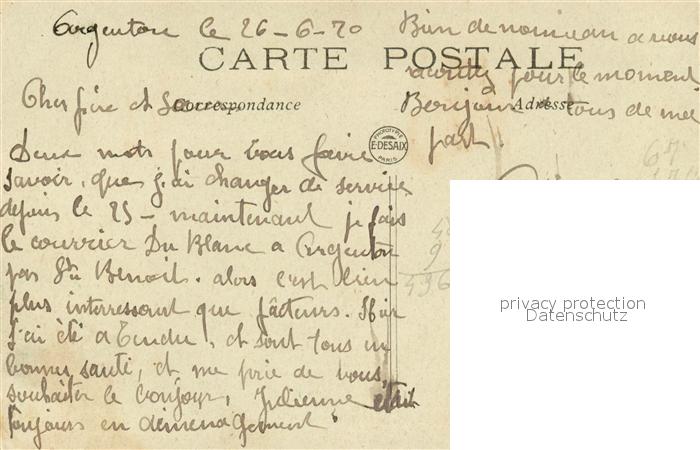 Argenton le 26-6-20
Bien de nouveau a vous
raconter pour le moment
Bonjour a tous de ma
part.
CARTE POSTALE
Correspondance
Adresse
PHOTOTYPIE
E. DESAIX
PARIS
Cher frère et Sœur
Deux mots pour vous faire
savoir, que j'ai changer de service
depuis le 25 - maintenant je fais
le courrier Du Blanc a Argenton
par St Benoit. alors c'est bien
plus interressant que facteurs. Hier
j'ai été a Tendu, et sont tous en
bonne santé, et me prie de vous
souhaiter le bonjour, Julienne était
toujours en démenagement.
privacy protection
Datenschutz